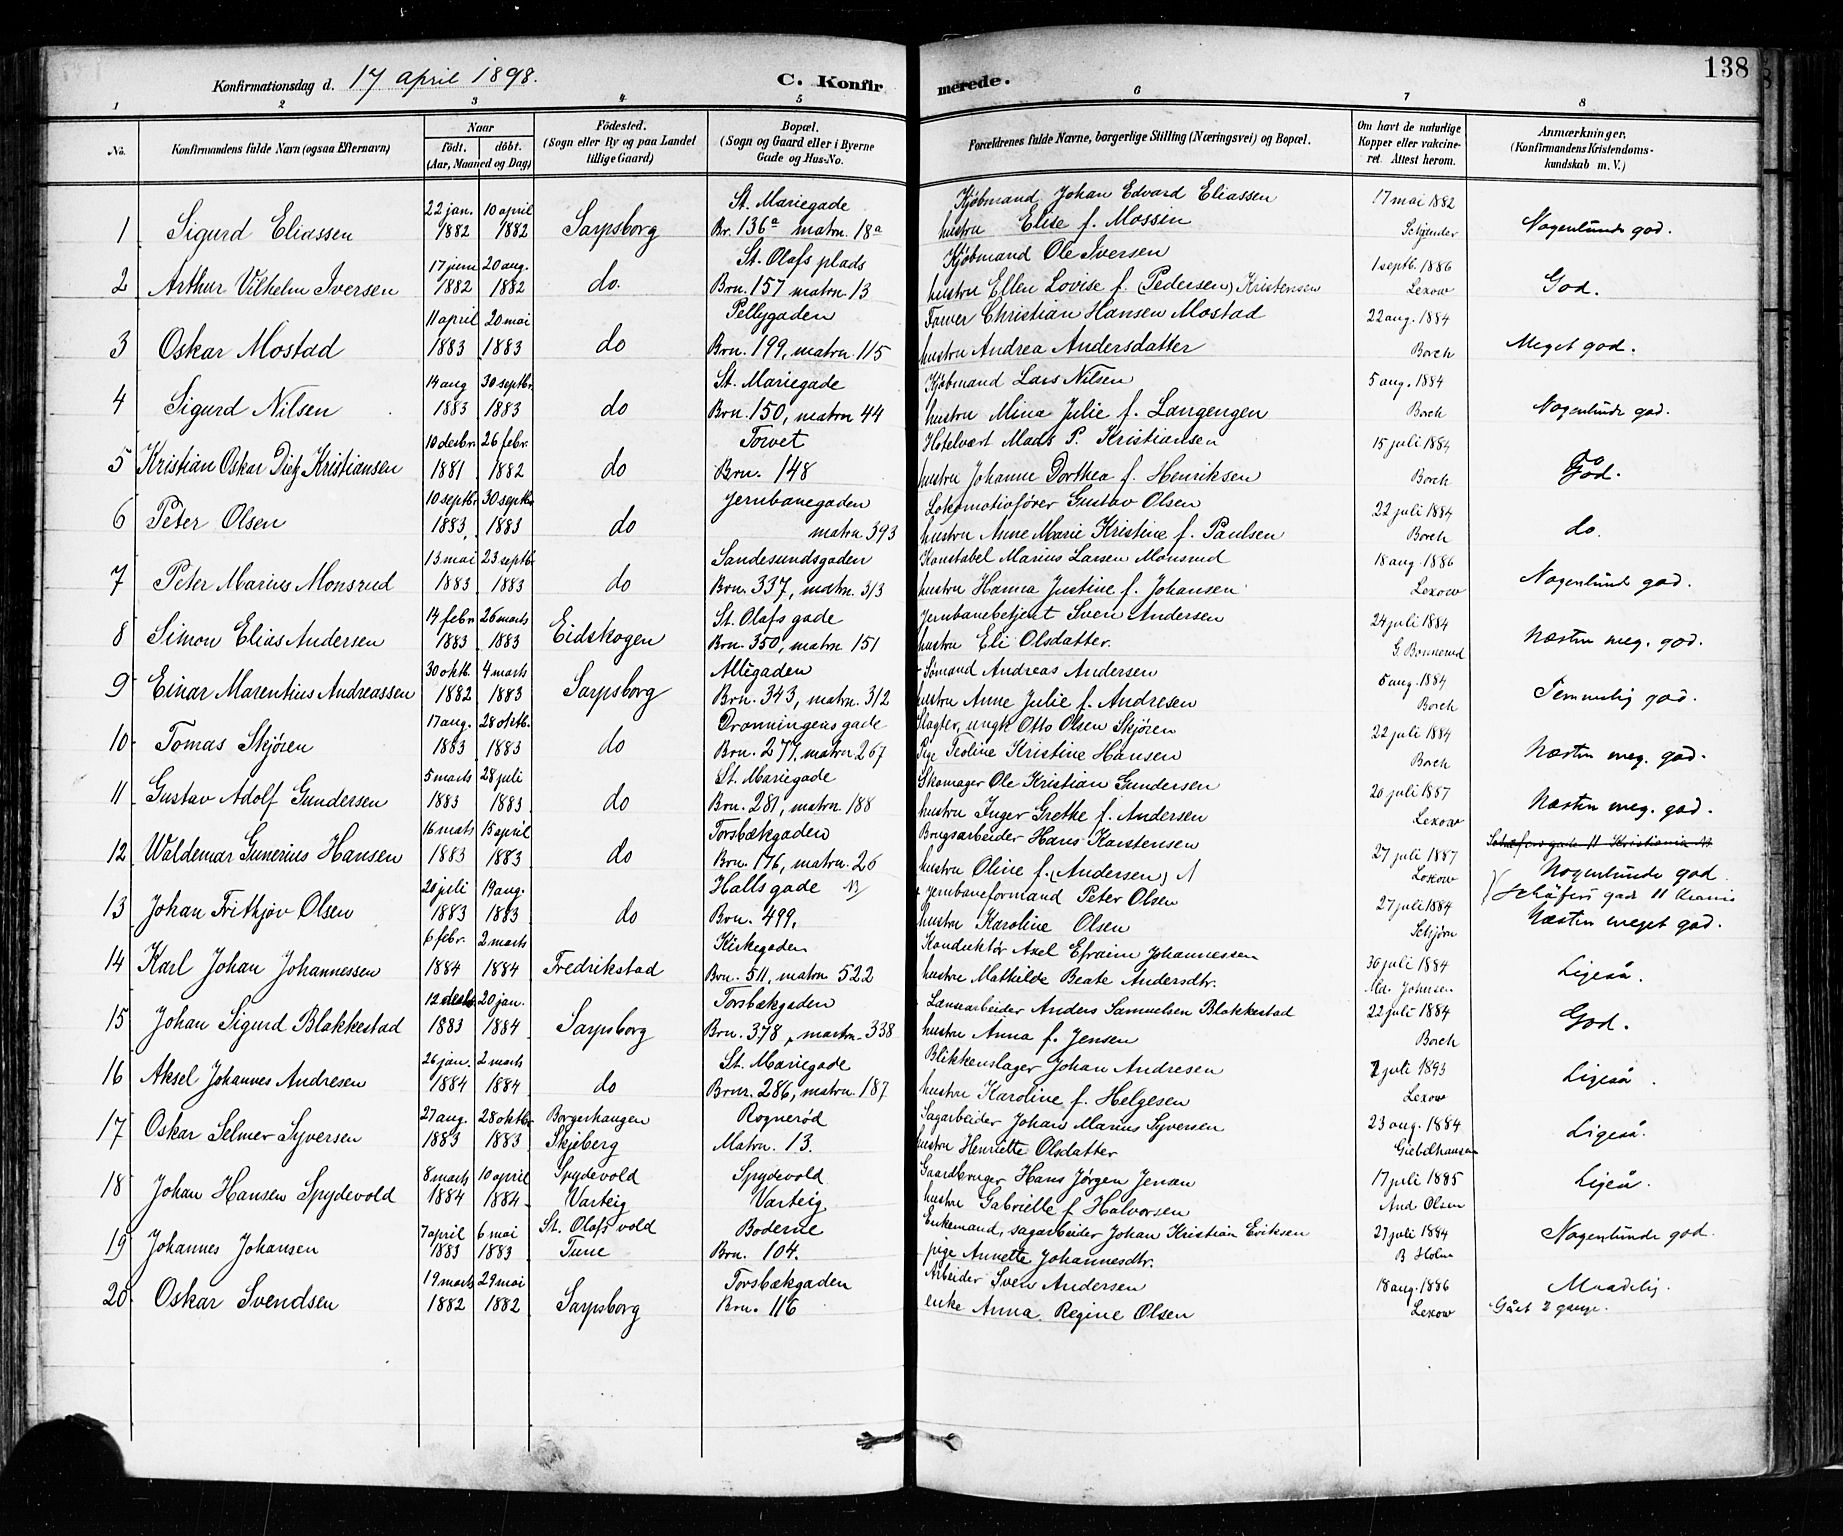 138
Konfirmationsdag d. 17 april 1898.
C. Konfirmerede.
1 2 3 4 5 6 7 8
No.
Konfirmandens fulde Navn (ogsaa Efternavn)
Naar
født. døbt.
(Aar, Maaned og Dag)
Fødested.
(Sogn eller By og paa Landet
tillige Gaard)
Bopæl.
(Sogn og Gaard eller i Byerne
Gade og Hus-No.
Forældrenes fulde Navne, borgerlige Stilling (Næringsvei) og Bopæl.
Om havt de naturlige
Kopper eller vakcine-
ret. Attest herom.
Anmærkninger.
(Konfirmandens Kristendoms-
kundskab m. V.)
22 jan. 10 april St. Mariegade Kjøbmand Johan Edvard Eliassen 17 mai 1882
1 Sigurd Eliassen 1882 1882 Sarpsborg Br. 136a matrn. 18a hustru Elise f. Mossin Nogenlunde god.
17 juni 20 aug. St. Olafs plads Kjøbmand Ole Iversen 1 septb. 1886
2 Arthur Vilhelm Iversen 1882 1882 do. Brn. 157 matrn. 13 hustru Ellen Lovise f. (Pedersen) Kristensen Lexow God.
11 april 20 mai Pellygaden Farver Christian Hansen Mostad 22 aug. 1884
3 Oskar Mostad 1883 1883 do Brn. 199, matrn. 115 hustru Andrea Andersdatter Borch Meget god.
14 aug 30 septbr. St. Mariegade Kjøbmand Lars Nilsen 5 aug. 1884
4 Sigurd Nilsen 1883 1883 do Brn. 150, matrn 44 hustru Mina Julie f. Langengen Borch Nogenlunde god.
10 decbr. 26 febr. Torvet Hotelvært Mads P. Kristiansen 15 juli 1884
5 Kristian Oskar Dietz Kristiansen 1881 1882 do Brn. 148 hustru Johanne Dorthea f. Henriksen Borch God.
10 septbr. 30 septbr. Jernbanegaden Lokomotivfører Gustav Olsen 22 juli 1884
6 Peter Olsen 1883. 1883 do matrn. 393 hustru Anne Marie Kristine f. Paulsen Borch do.
13 mai 23 septbr Sandesundsgaden Konstabel Marius Larsen Monsrud 18 aug 1886
7 Peter Marius Monsrud 1883 1883 do Brn. 337, matrn. 313 hustru Hanna Justine f. Johansen Lexow Nogenlunde god.
14 febr. 26 marts St. Olafs gade Jernbanebetjent Sven Andersen 24 juli 1884
8 Simon Elias Andersen 1883 1883 Eidskogen Brn. 350, matrn 151 hustru Eli Olsdatter. Næsten meg. god.
30 oktb. 4 marts Allégaden Sømand Andreas Andersen 5 aug. 1884
9 Einar Marentius Andreassen 1882 1883 Sarpsborg Brn. 343, matrn. 312 hustru Anne Julie f. Andresen Borch Temmelig god.
17 aug. 28 oktb. Dronningens gade Slagter, ungk. Otto Olsen Skjøren 22 juli 1884
10 Tomas Skjøren 1883 1883 do Brn. 277, matrn 267 Pige Teoline Kristine Hansen Borch Næsten meg. god.
5 marts 28 juli St. Mariegade Skomager Ole Kristian Gundersen 20 juli 1887
11 Gustav Adolf Gundersen 1883 1883 do Brn. 281, matrn 188 hustru Inger Grethe f. Andersen Lexow Næsten meg. god.
16 marts 15 april Torsbækgaden Brugsarbeider Hans Karstensen 27 juli 1887
12 Waldemar Gunerius Hansen 1883 1883 do Brn. 176, matrn. 26 hustru Oline f. (Andersen) Lexow Nogenlunde god.
20 juli 19 aug. Halls gade Jernbaneformand Peter Olsen 27 juli 1884 Schäfers gade 11 Krania
13 Johan Frithjov Olsen 1883 1883 do Brn. 499. hustru Karoline Olsen Schjørn Næsten meget god.
6 febr. 2 marts Kirkegaden Konduktør Axel Efraim Johannessen 30 juli 1884
14 Karl Johan Johannessen 1884 1884 Fredrikstad Brn. 511, matrn 522 hustru Mathilde Beate Andersdtr. Johnsen Ligeså.
12 decbr. 20 jan. Torsbækgaden Anders Samuelsen Blakkestad 22 juli 1884
15 Johan Sigurd Blakkestad 1883 1884 Sarpsborg Brn. 378, martrn. 338 hustru Anna f. Jensen Borch God.
26 jan. 2 marts St. Mariegade Blikkenslager Johan Andresen 7 juli 1893
16 Aksel Johannes Andresen 1884 1884 do Brnr. 286, matrn. 187 hustru Karoline f. Helgesen Lexow Ligeså.
27 aug. 28 oktbr. Borgerhaugen Rognerød Sagarbeider Johan Marius Syversen 23 aug. 1884
17 Oskar Selmer Syversen 1883 1883 Skjeberg Matrn. 13. hustru Henriette Olsdatter Giebelhausen Ligeså.
8 marts 10 april Spydevold Spydevold Gaardbruger Hans Jørgen Jensen 17 juli 1885
18 Johan Hansen Spydevold 1884 1884 Varteig Varteig hustru Gabrielle f. Halvorsen And Olsen Ligeså.
7 april 6 mai St. Olafs vold Boderne Enkemand, sagarbeider Johan Kristian Eriksen 27 juli 1884
19 Johannes Johansen 1883 1883 Tune Brn. 104. pige Annette Johannesdtr. B Holm Nogenlunde god.
19 marts 29 mai Torsbækgaden Arbeider Sven Andersen 18 aug. 1886 Maadelig.
20 Oskar Svendsen 1882 1882 Sarpsborg Brn. 116 enke Anna Regine Olsen Lexow Gået 2 gange.